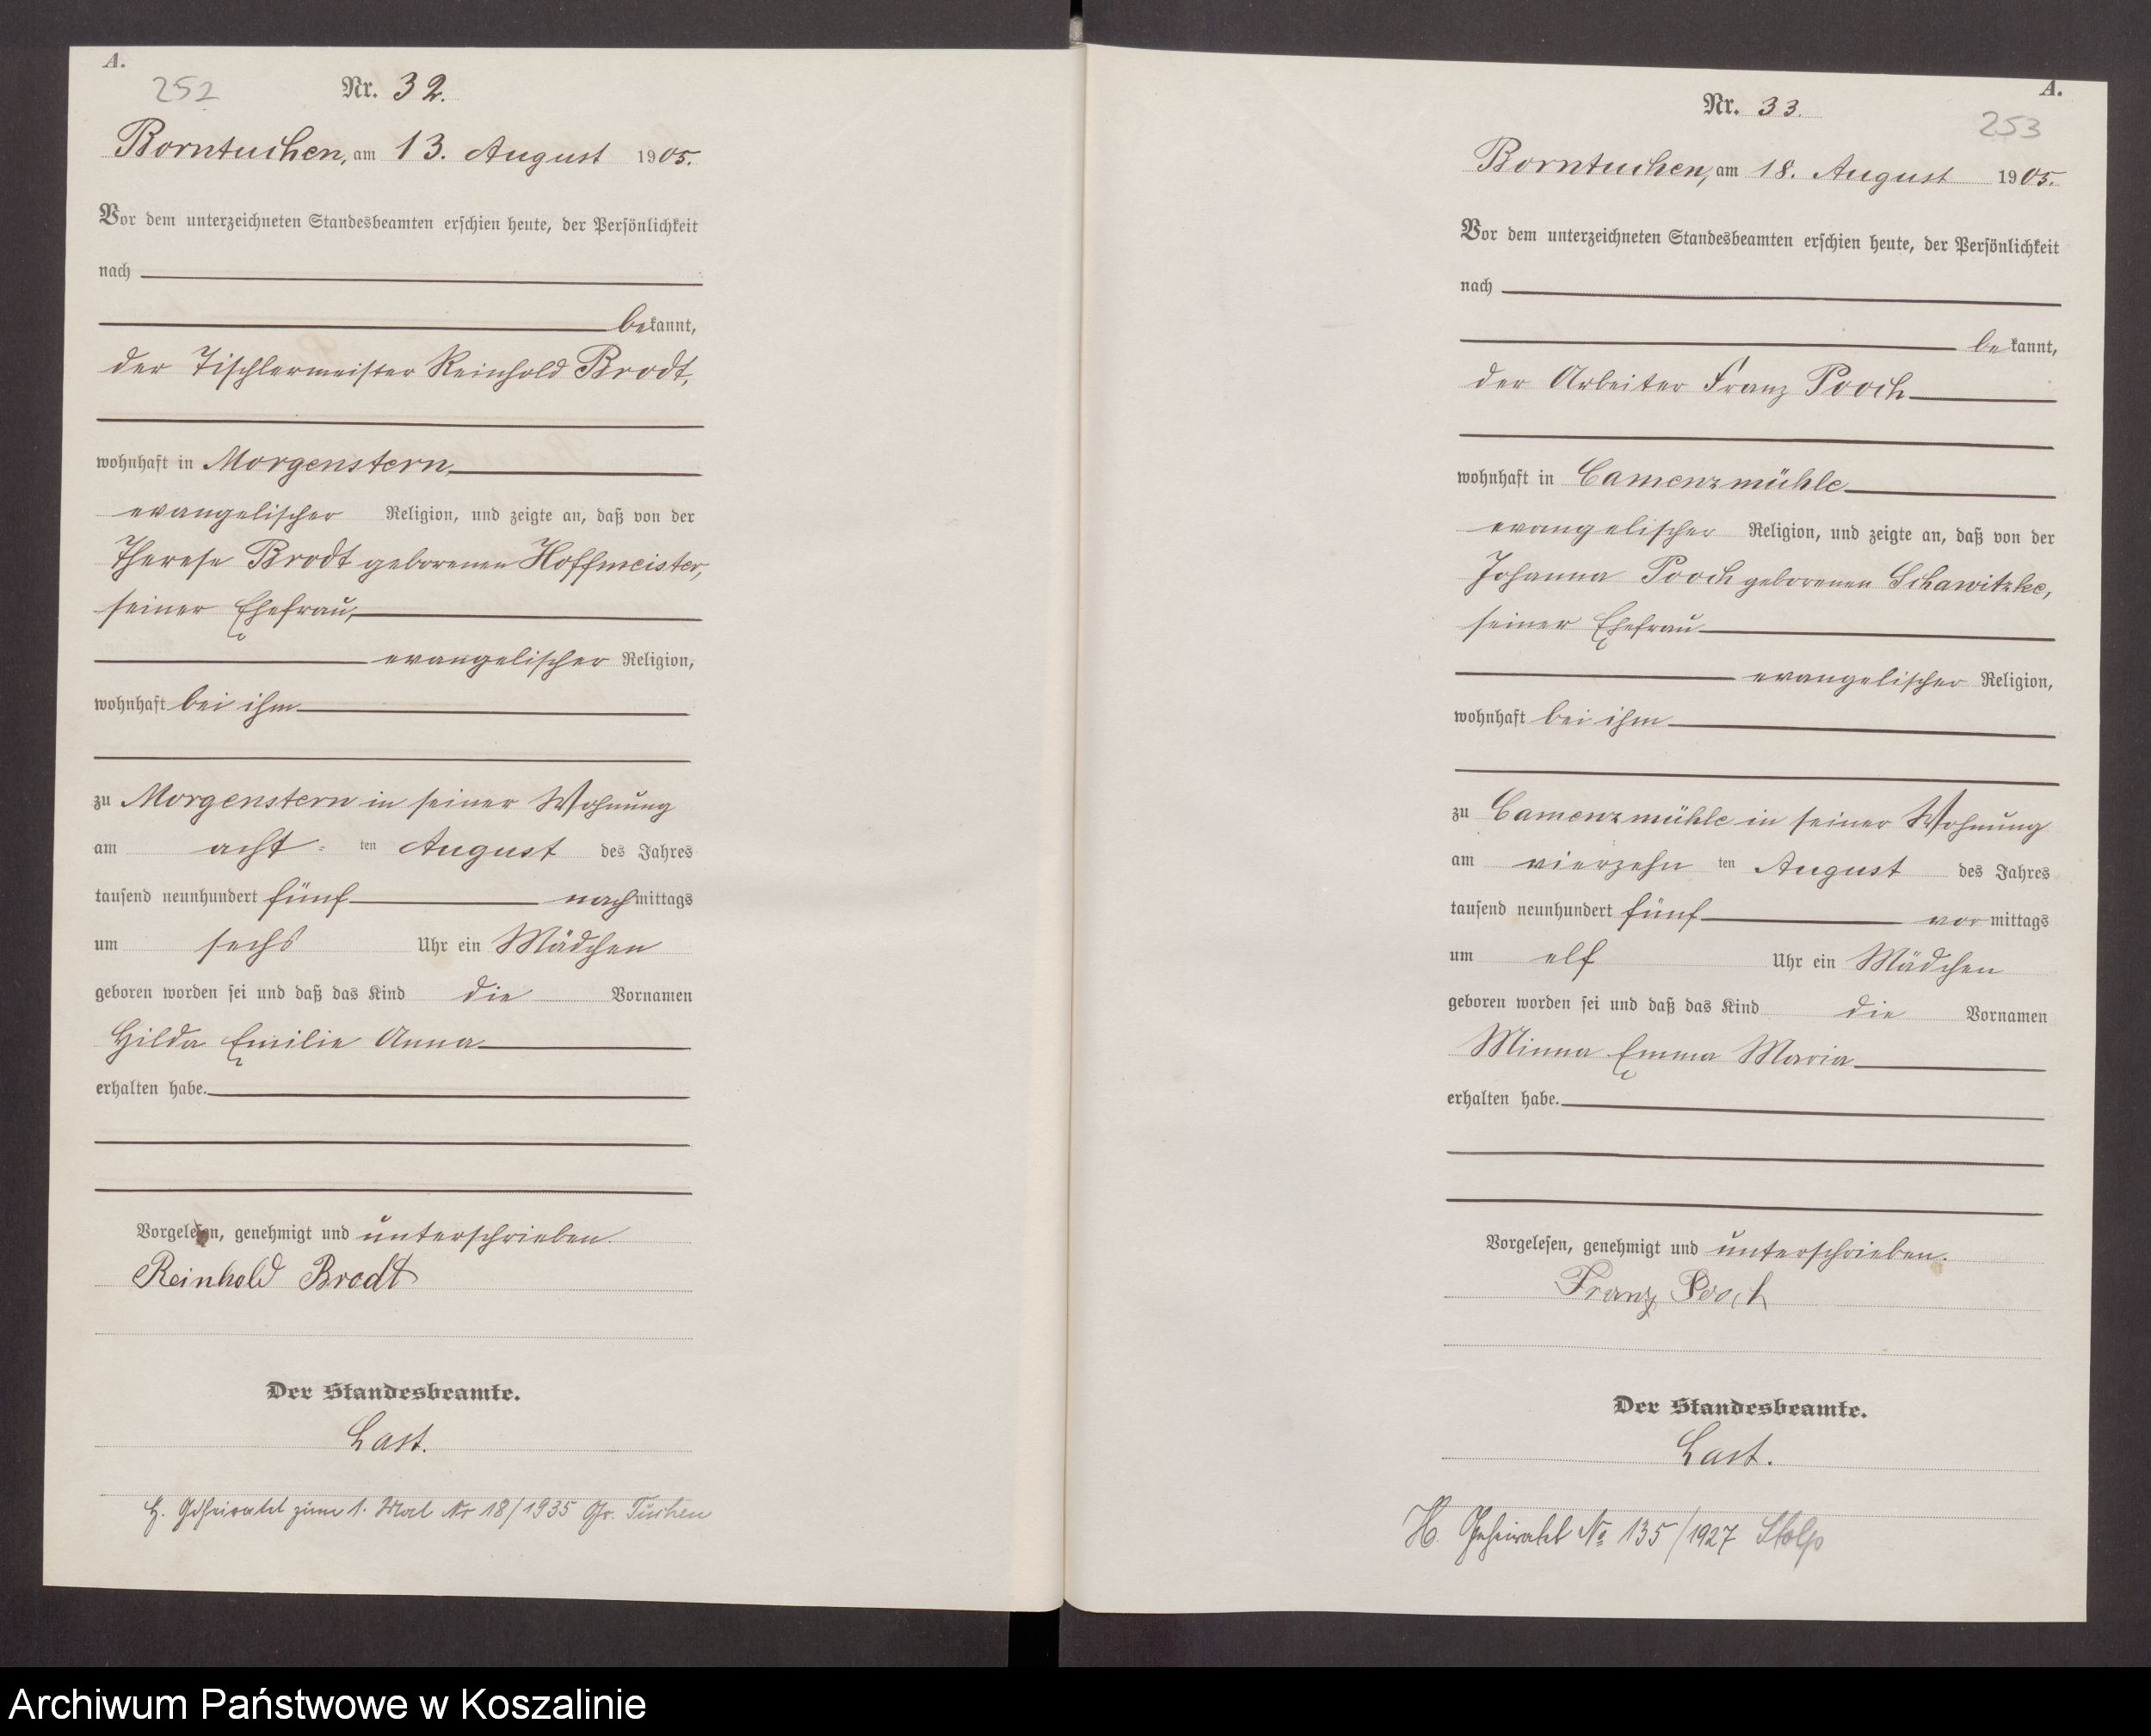 A.
252
Nr. 32.
Borntuchen, am 13. August 1905.
Vor dem unterzeichneten Standesbeamten erschien heute, der Persönlichkeit
nach
bekannt,
der Tischlermeister Reinhold Brodt,
wohnhaft in Morgenstern,
evangelischer Religion, und zeigte an, daß von der
Therese Brodt geborenen Hoffmeister,
seiner Ehefrau,
evangelischer Religion,
wohnhaft bei ihm
zu Morgenstern in seiner Wohnung
am acht-ten August des Jahres
tausend neunhundert fünf nachmittags
um sechs Uhr ein Mädchen
geboren worden sei und daß das Kind die Vornamen
Hilda Emilie Anna
erhalten habe.
Vorgelesen, genehmigt und unterschrieben.
Reinhold Brodt
Der Standesbeamte.
Last.
zum 1. Mal Nr 18/1935 Gr. Tuchen
A.
253
Nr. 33.
Borntuchen, am 18. August 1905.
Vor dem unterzeichneten Standesbeamten erschien heute, der Persönlichkeit
nach
bekannt,
der Arbeiter Franz Pooch
wohnhaft in Camenzmühle
evangelischer Religion, und zeigte an, daß von der
Johanna Pooch geborenen Schawitzke,
seiner Ehefrau
evangelischer Religion,
wohnhaft bei ihm
zu Camenzmühle in seiner Wohnung
am vierzehnten August des Jahres
tausend neunhundert fünf vormittags
um elf Uhr ein Mädchen
geboren worden sei und daß das Kind die Vornamen
Minna Emma Maria
erhalten habe.
Vorgelesen, genehmigt und unterschrieben.
Franz Pooch
Der Standesbeamte.
Last.
H. Geheiratet No 135/1927 Stolp
Archiwum Państwowe w Koszalinie